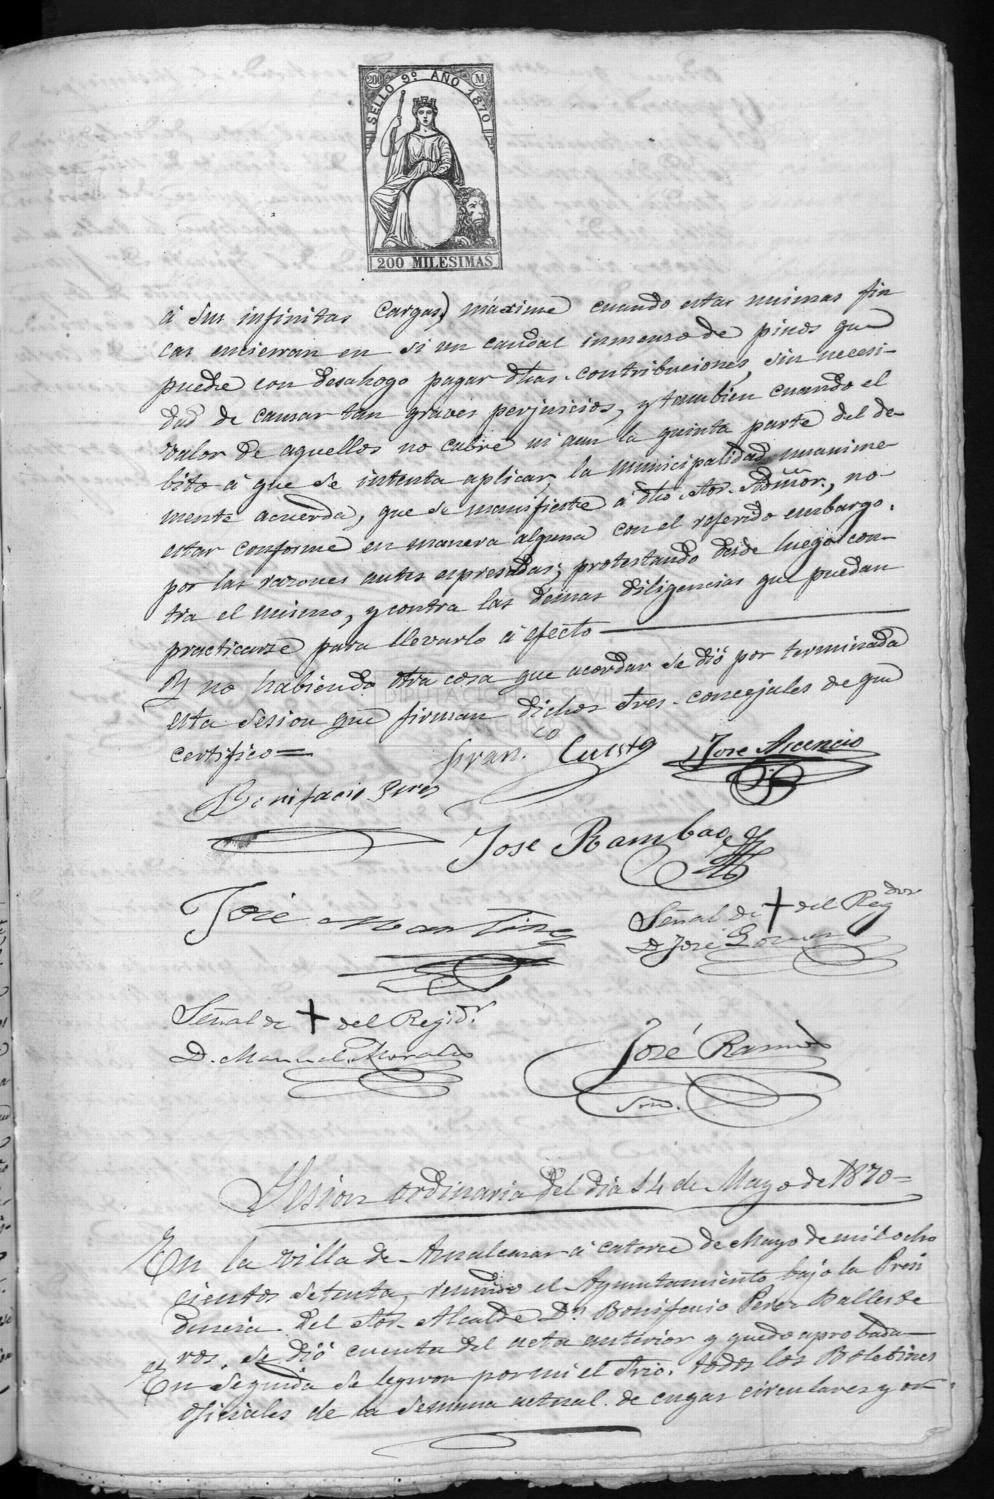 200 M
SELLO 9º AÑO 1870
200 MILESIMAS
á sus infinitas Cargas) máxime cuando estas mismas fin
cas encierran en si un caudal inmenso de pinos que
puede con desahogo pagar dhas. contribuciones, sin necesi-
dad de causar tan graves perjuicios, y tambien cuando el
valor de aquellos no cubre ni aun la quinta parte del de-
bito á que se intenta aplicar, la municipalidad unanime
mente acuerda, que se manifieste á dho. Sor. Admor., no
estar conforme en manera alguna con el referido embargo.
por las razones antes espresadas; protestando desde luego con-
tra el mismo, y contra las demas diligencias que puedan
practicarse para llevarlo á efecto
Y no habiendo otra cosa que acordar se dió por terminada
DIPUTACION DE SEVILLA
esta sesion que firman dichos Sres. concejales de que
certifico=
Franco. Cuesta
José Ascencio
Bonifacio Perez
José Rambao
José Martinez
Señal de + del Regdor
D. José Gomez
Señal de + del Regidr.
D. Manuel Morales
José Ramos
Srio.
Sesion ordinaria del dia 14 de Mayo de 1870=
En la villa de Aznalcazar á catorce de Mayo de mil ocho
cientos setenta, reunido el Ayuntamiento bajo la Presi
dencia del Sor. Alcalde Dn. Bonifacio Perez Balleste
ros, se dió cuenta del acta anterior y quedó aprobada
En seguida se leyeron por mi el Srio. todos los Boletines
oficiales de la semana actual. de cuyas circulares y or